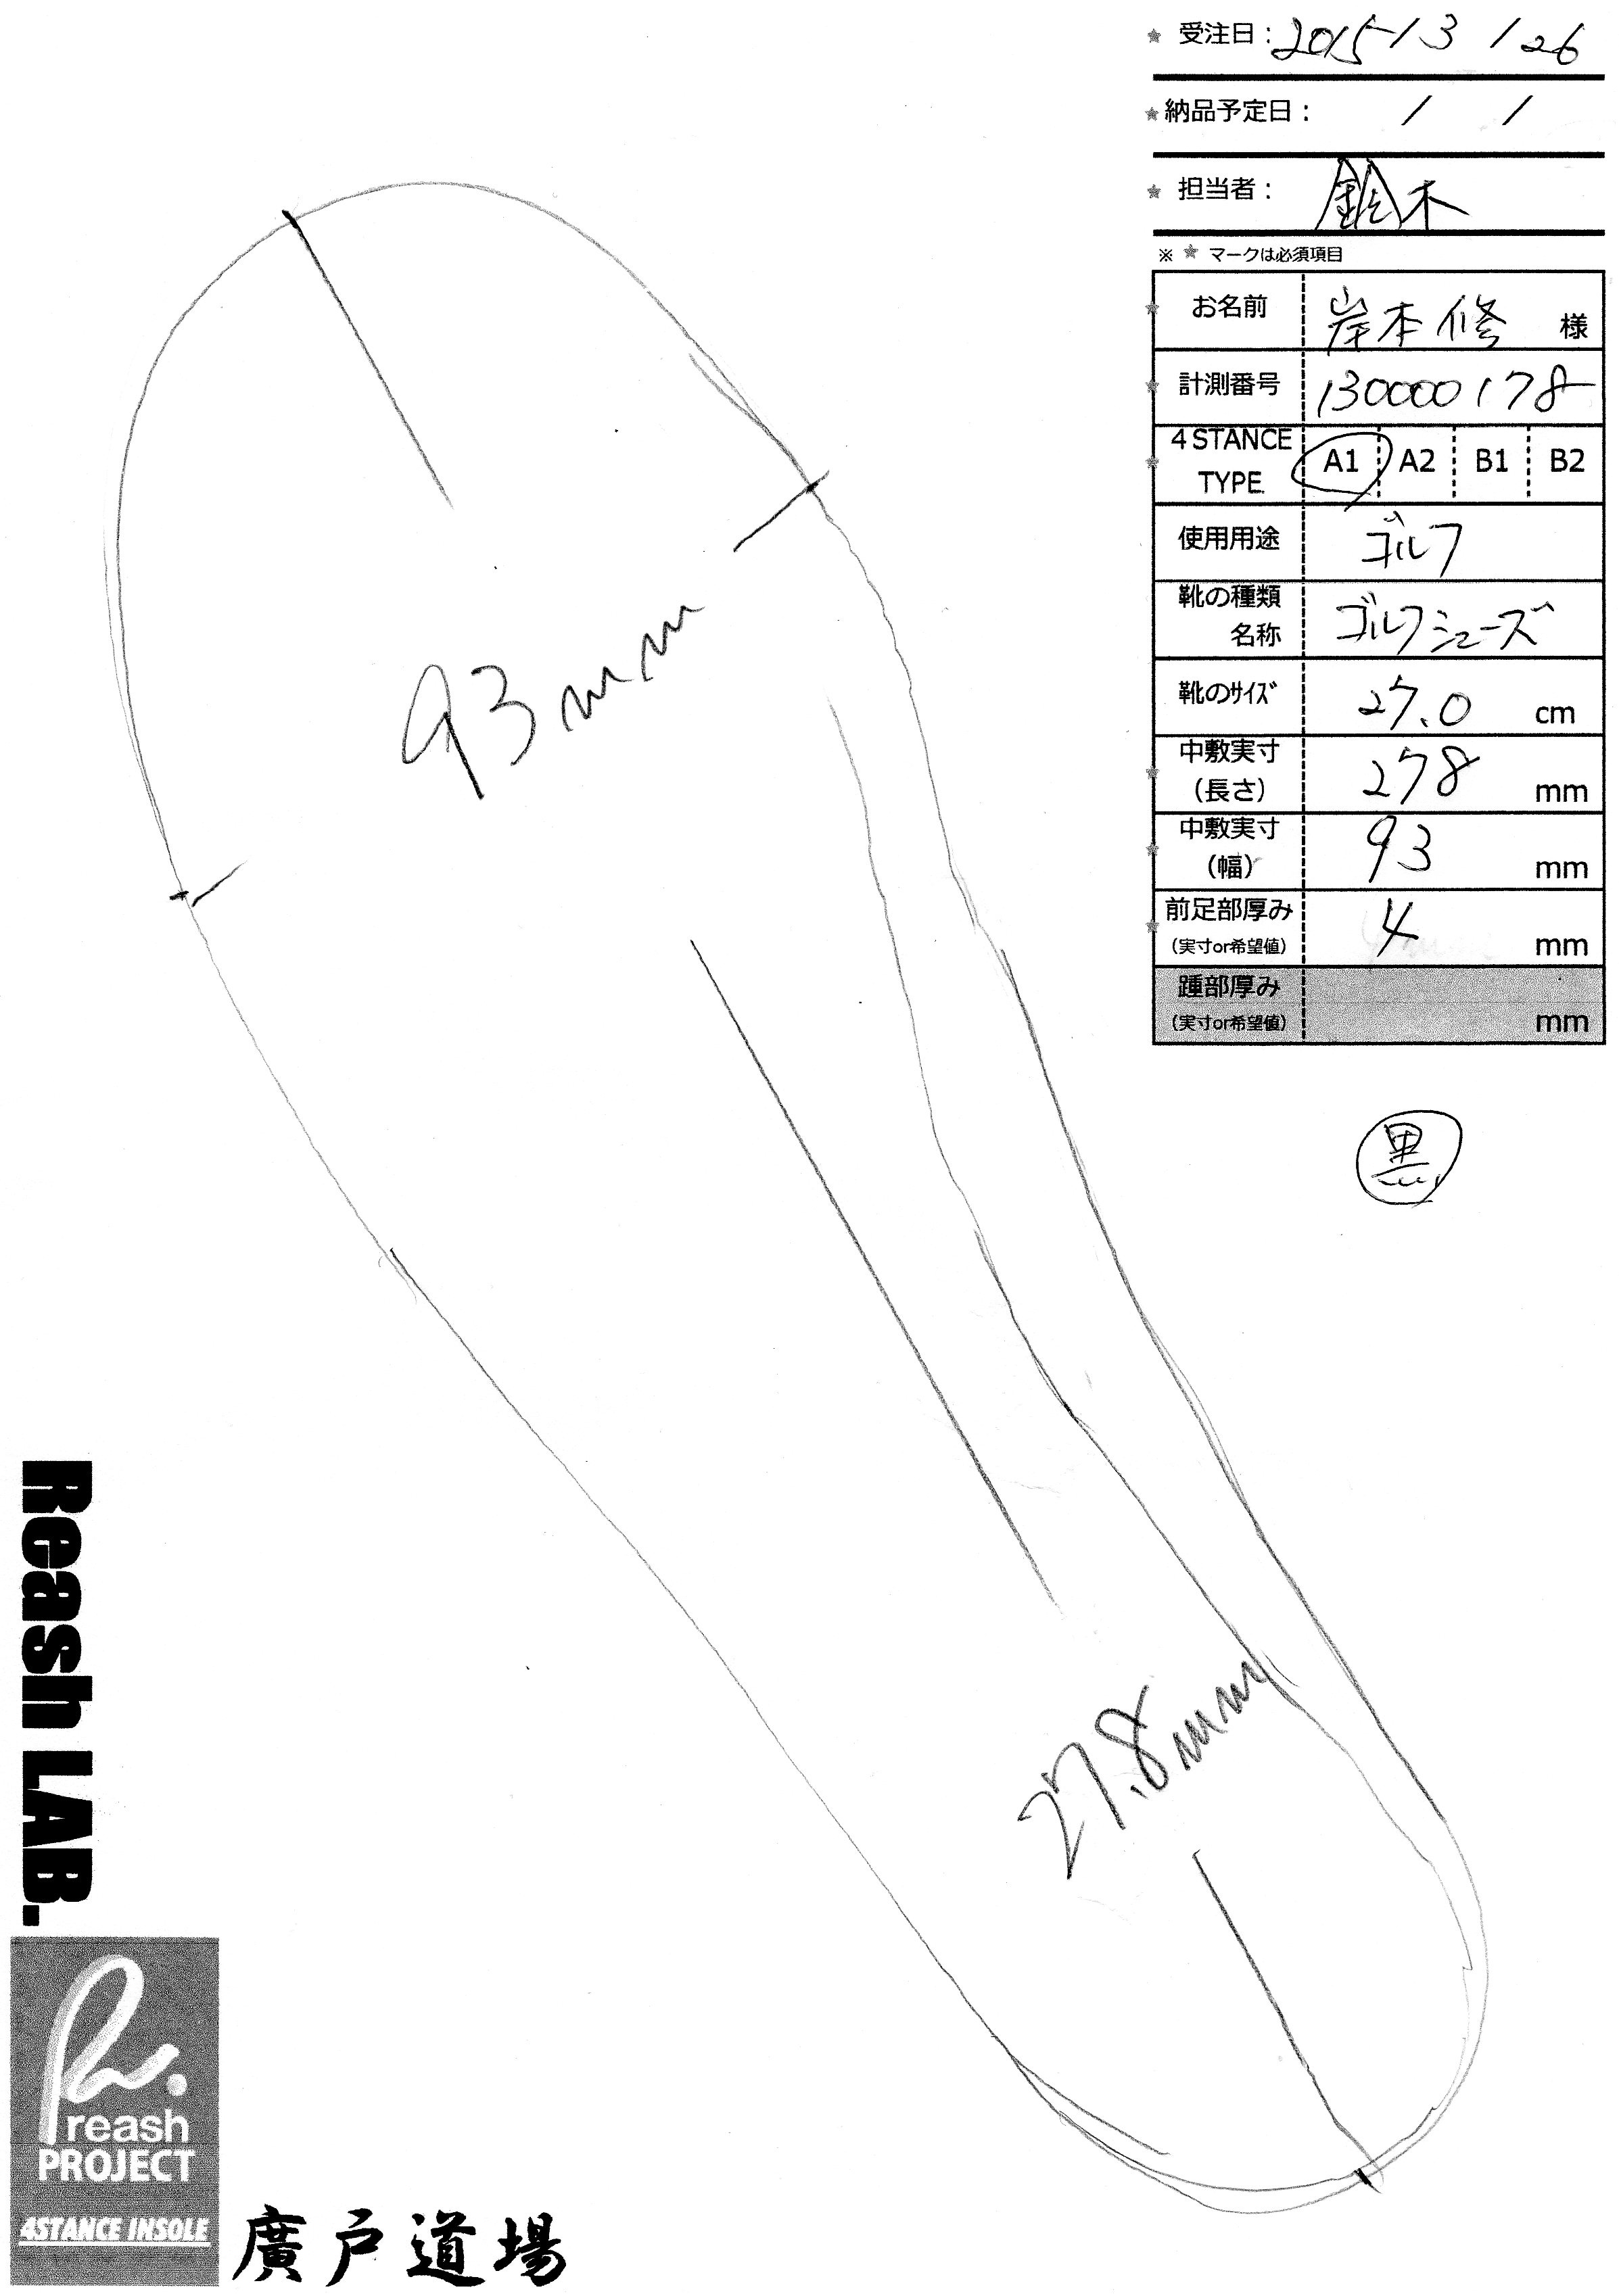 ★ 受注日：2015/3/26
★ 納品予定日： / /
★ 担当者：鈴木
※ ★ マークは必須項目
★ お名前 岸本修 様
★ 計測番号 130000178
★ 4 STANCE TYPE A1 A2 B1 B2
使用用途 ゴルフ
靴の種類
名称 ゴルフシューズ
靴のサイズ 27.0 cm
★ 中敷実寸
（長さ） 278 mm
★ 中敷実寸
（幅） 93 mm
★ 前足部厚み
（実寸or希望値） 4 mm
踵部厚み
（実寸or希望値） mm
黒
93mm
27.8mm
Reash LAB.
reash
PROJECT
4STANCE INSOLE
廣戸道場